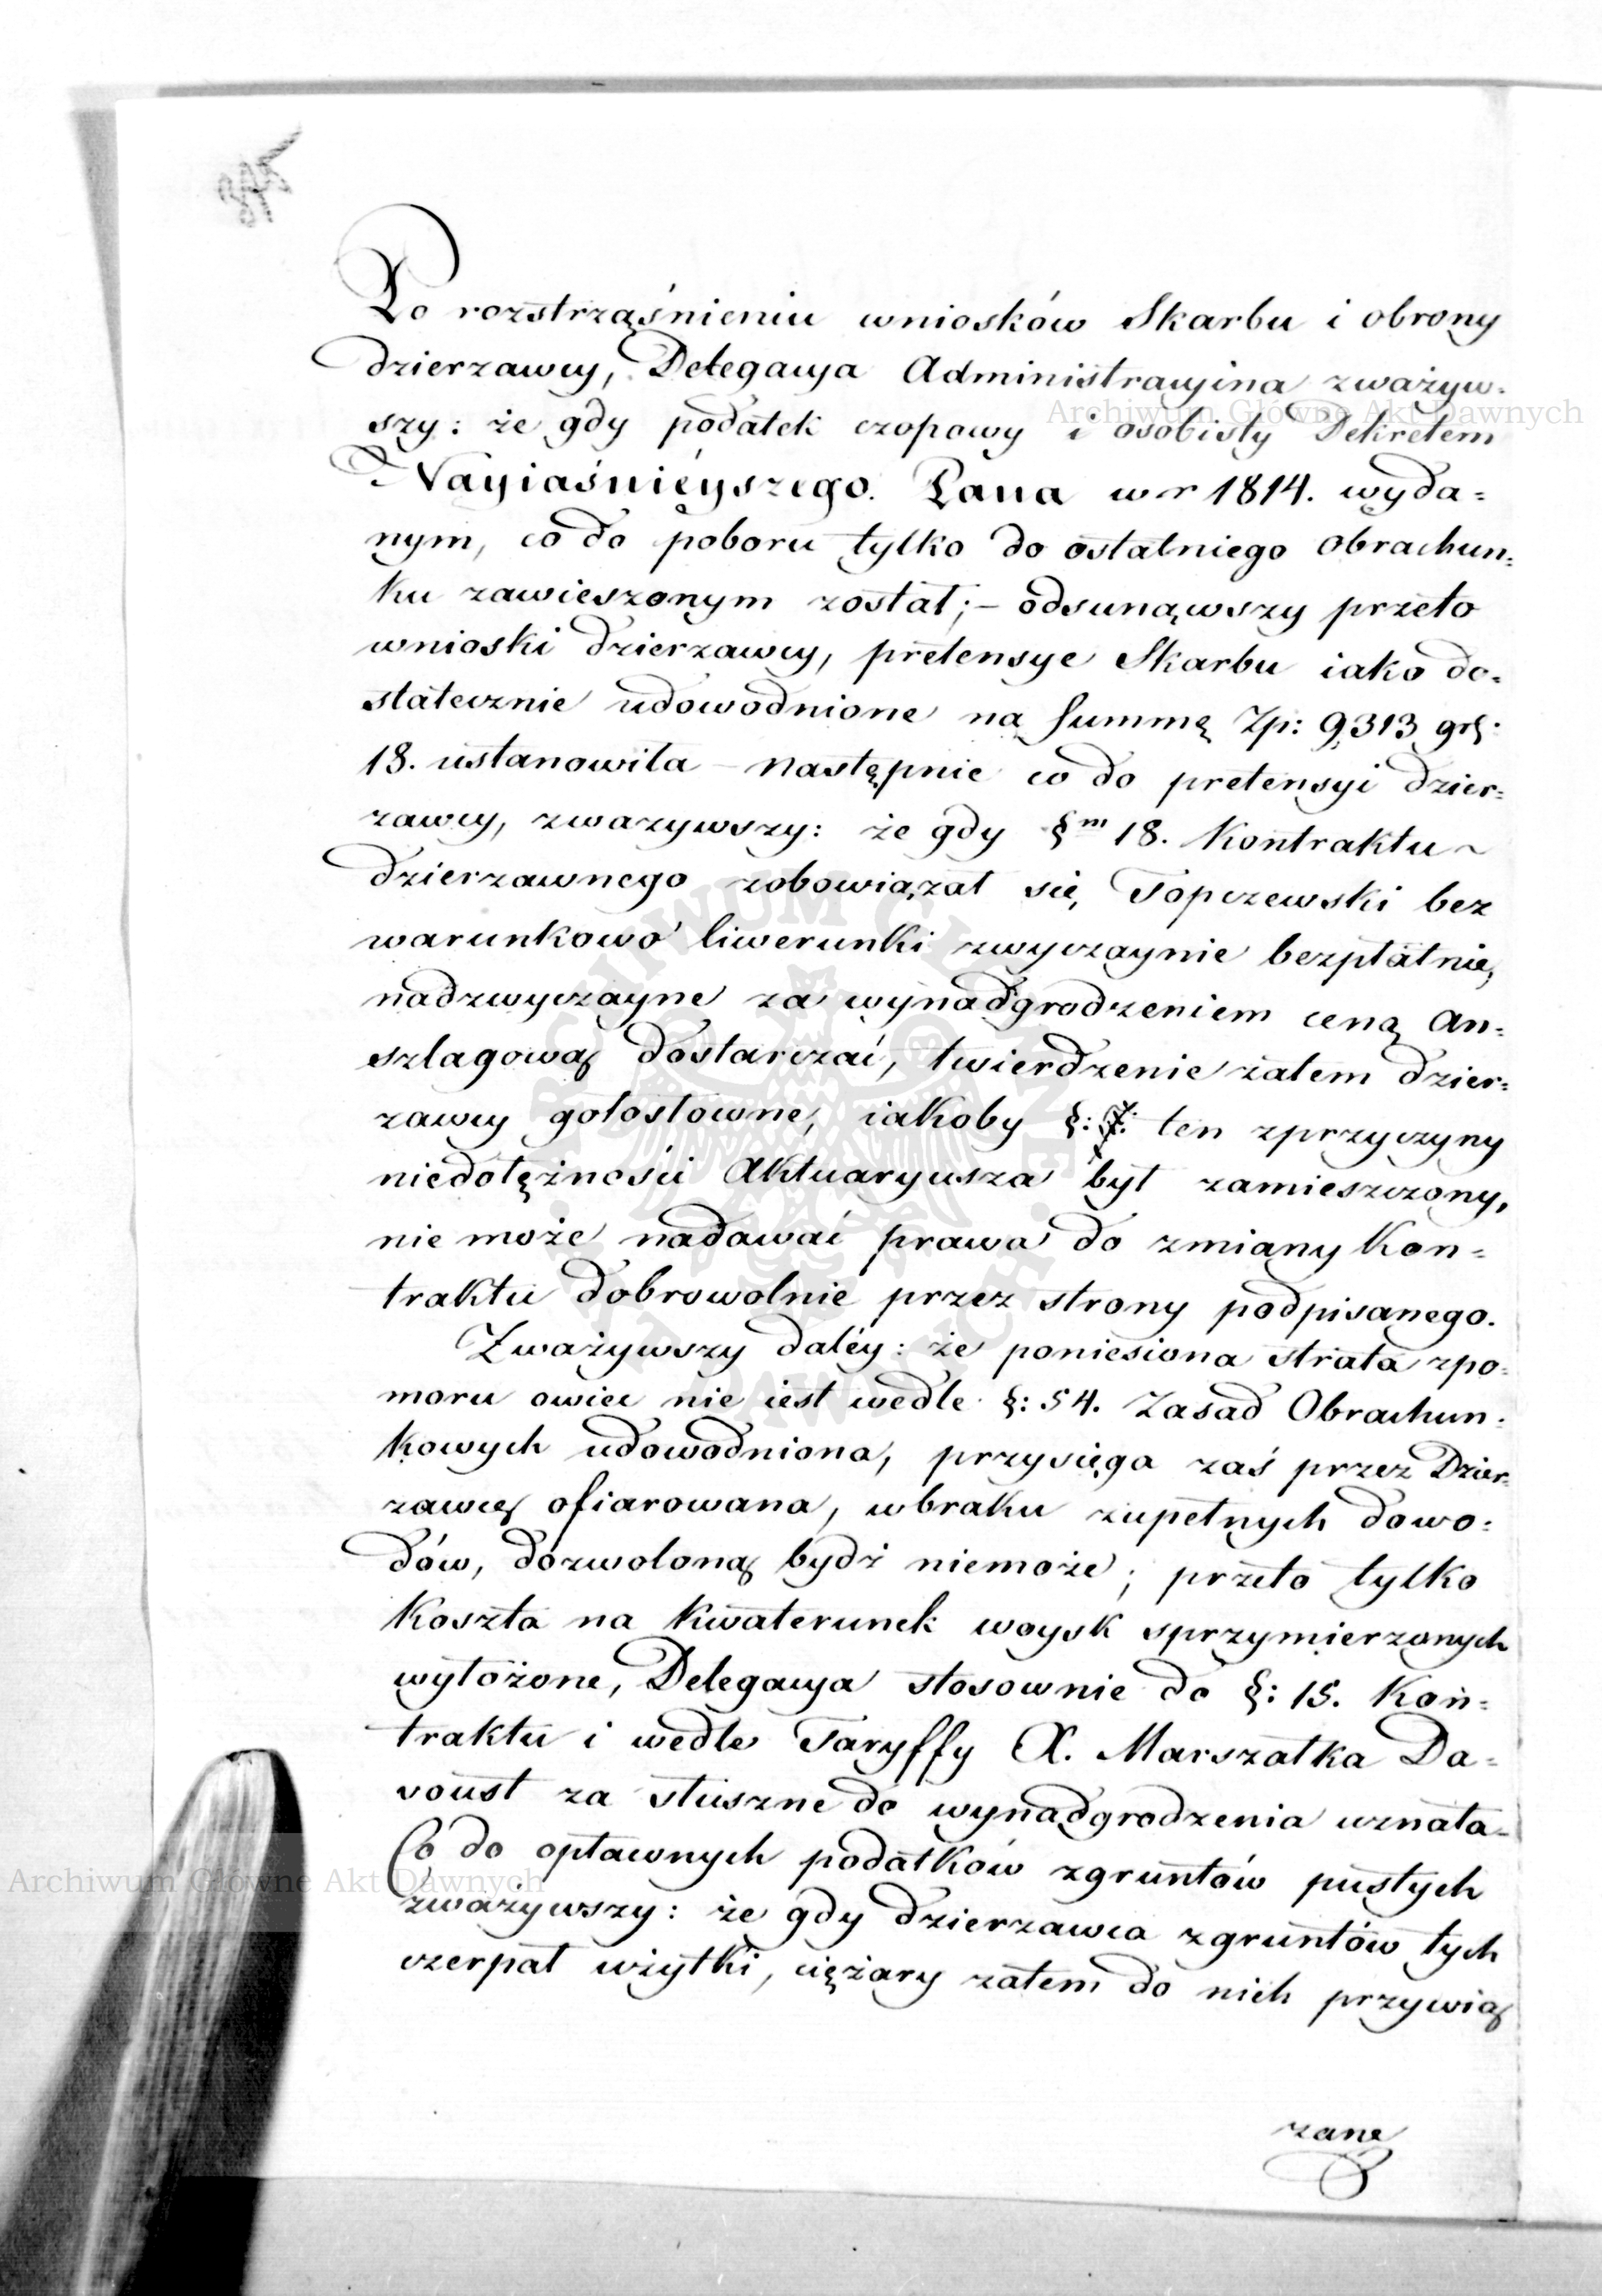 Po rozstrząśnieniu wniosków Skarbu i obrony
dzierzawcy, Delegacya Administracyina zważyw-
szy: że gdy podatek czopowy i osobisty Dekretem
Nayiaśnieyszego Pana w r 1814. wyda=
nym, co do poboru tylko do ostatniego obrachun=
ku zawieszonym został; – odsunąwszy przeto
wnioski dzierzawcy, pretensye Skarbu iako do=
statecznie udowodnione na summę Zp: 9313 gr:
18. ustanowiła – następnie co do pretensyi dzier=
zawcy, zwazywszy: że gdy §m 18. Kontraktu ~
dzierzawnego zobowiązał się, Topczewski bez
warunkowo liwerunki zwyczaynie bezpłatnie,
nadzwyczayne za wynadgrodzeniem ceną an=
szlagową dostarczać, twierdzenie zatem dzier=
zawcy gołosłowne, iakoby §: ten zprzyczyny
niedołężności Aktuaryusza był zamieszczony,
nie może nadawać prawa do zmiany Kon=
traktu dobrowolnie przez strony podpisanego.
Zważywszy daléy: że poniesiona strata zpo=
moru owiec nie iest wedle §: 54. Zasad Obrachun=
kowych udowodniona, przysięga zaś przez Dzier=
zawcę ofiarowana, wbraku zupełnych dowo=
dów, dozwoloną bydź niemoże; przeto tylko
Koszta na kwaterunek woysk sprzymierzonych
wyłożone, Delegacya stosownie do §: 15. Kon=
traktu i wedle Taryffy X. Marszałka Da=
voust za słuszne do wynadgrodzenia uznała –
Co do opławnych podatków zgruntów pustych
zważywszy: że gdy dzierzawca zgruntów tych
czerpał użytki, ciężary zatem do nich przywią
zane
Archiwum Główne Akt Dawnych
Archiwum Główne Akt Dawnych
ARCHIWUM GŁÓWNE · AKT DAWNYCH ·